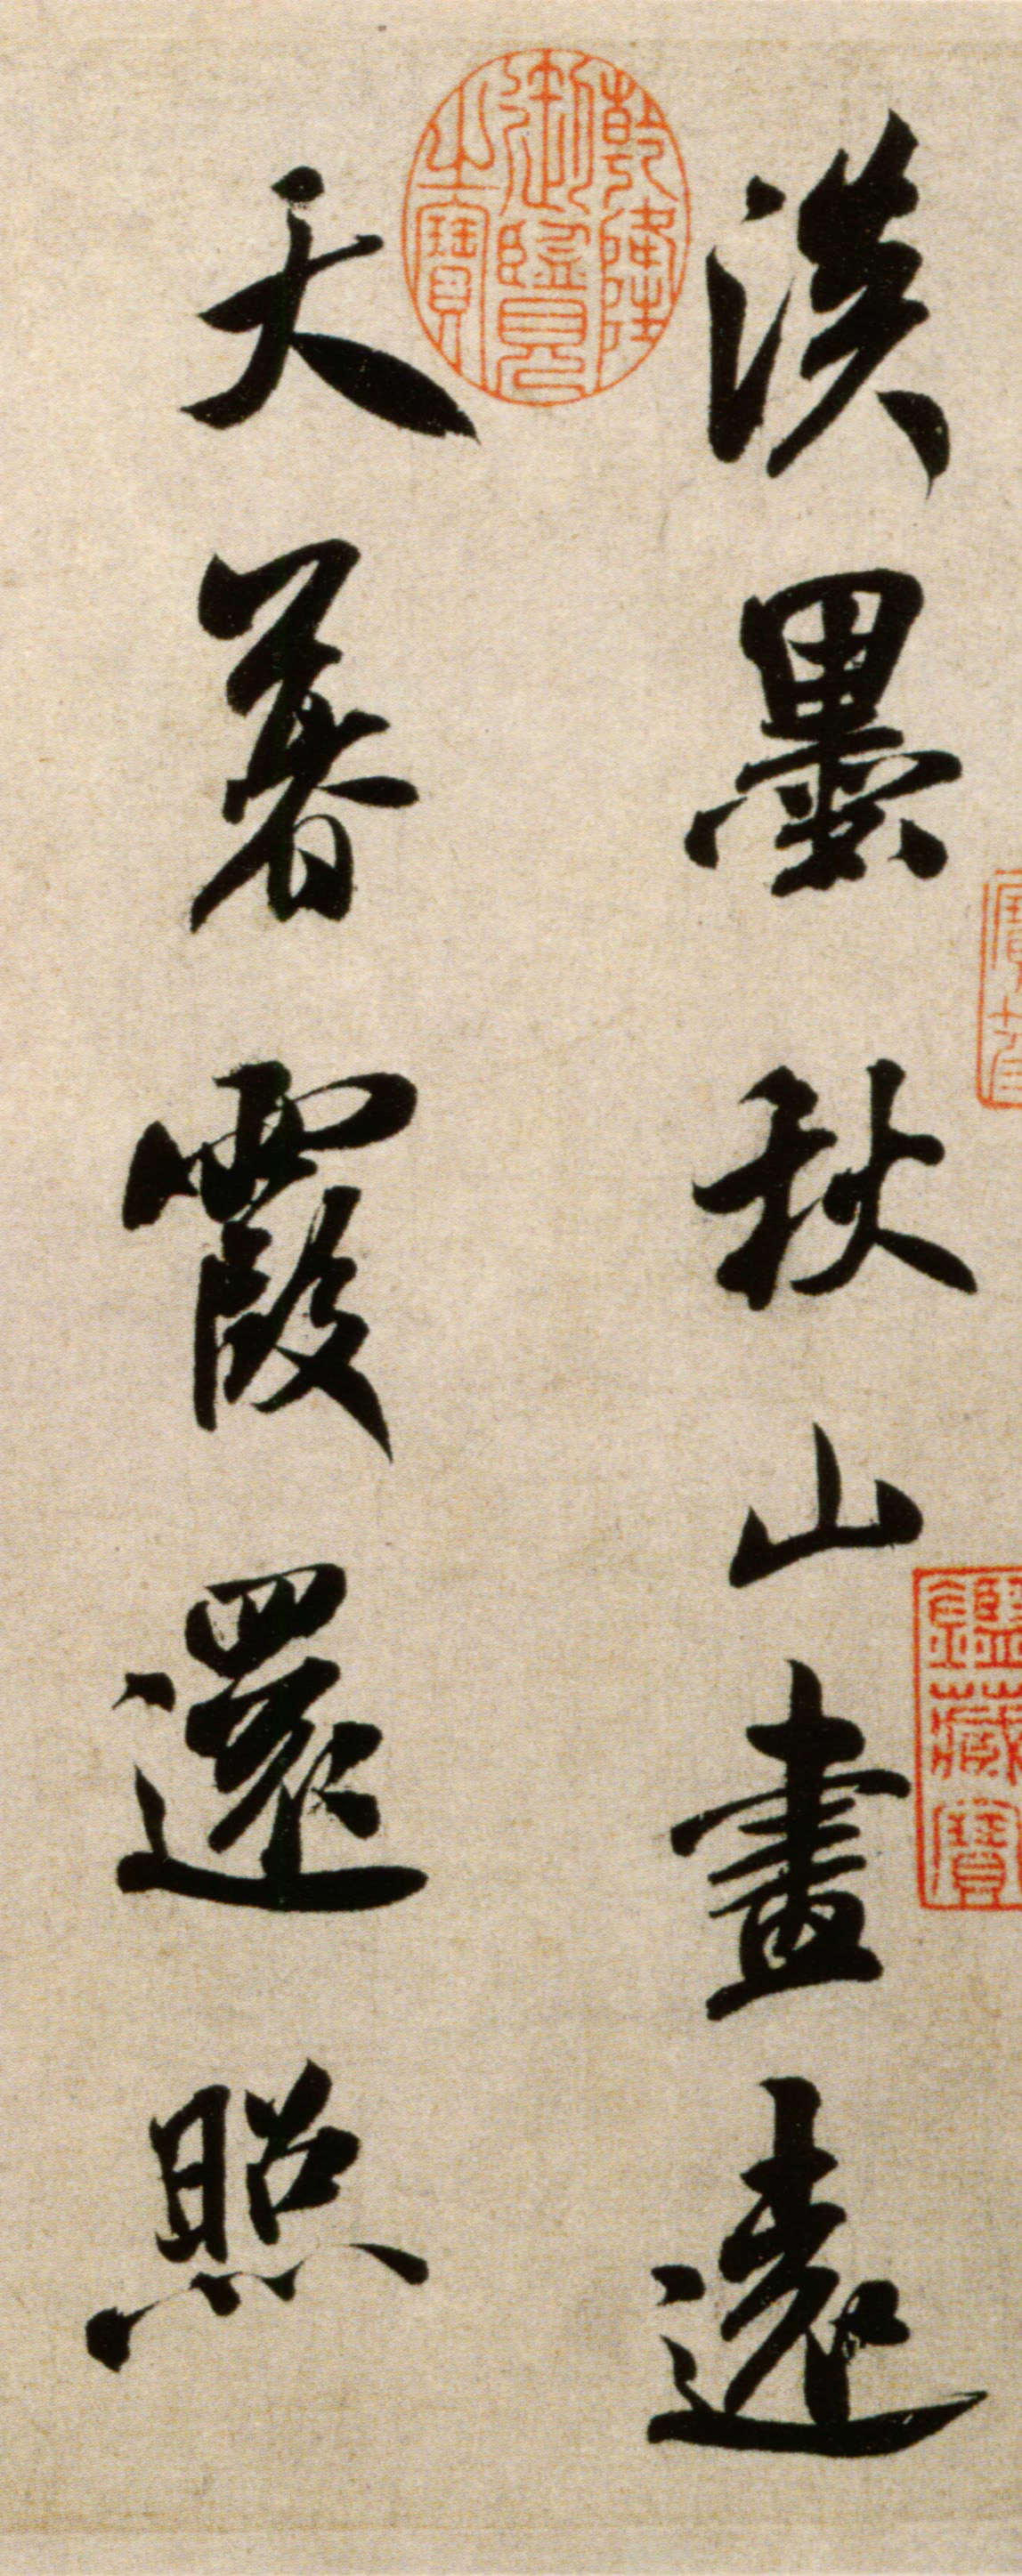 淡墨秋山畫遠
天暮霞還照
乾隆
御鑒
之寶
鑒藏寶